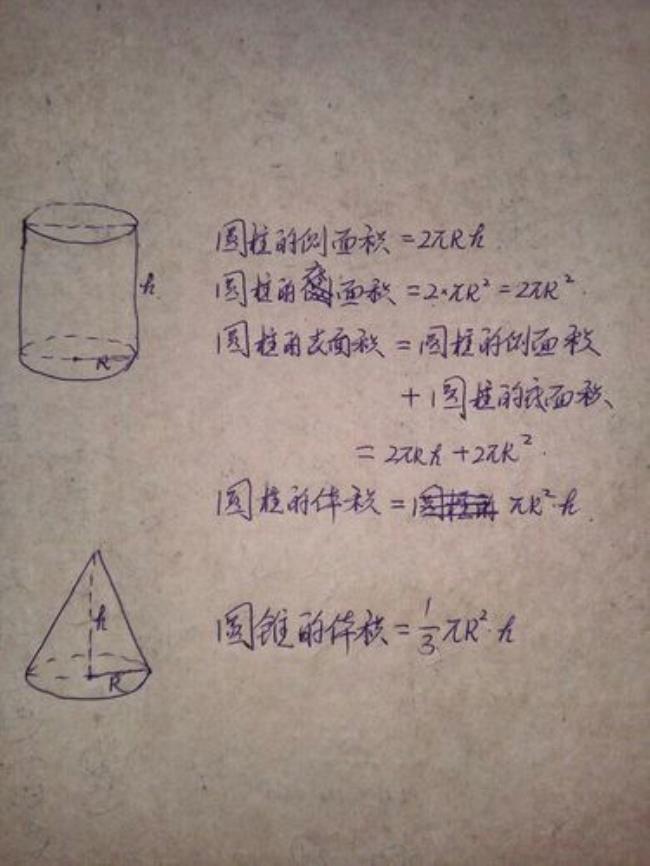 圆柱的侧面积 = 2πRh
h
圆柱的底面积 = 2·πR² = 2πR².
圆柱的表面积 = 圆柱的侧面积
R
+ 圆柱的底面积
= 2πRh + 2πR².
圆柱的体积 = πR²·h
圆锥的体积 = 1/3 πR²·h
h
R